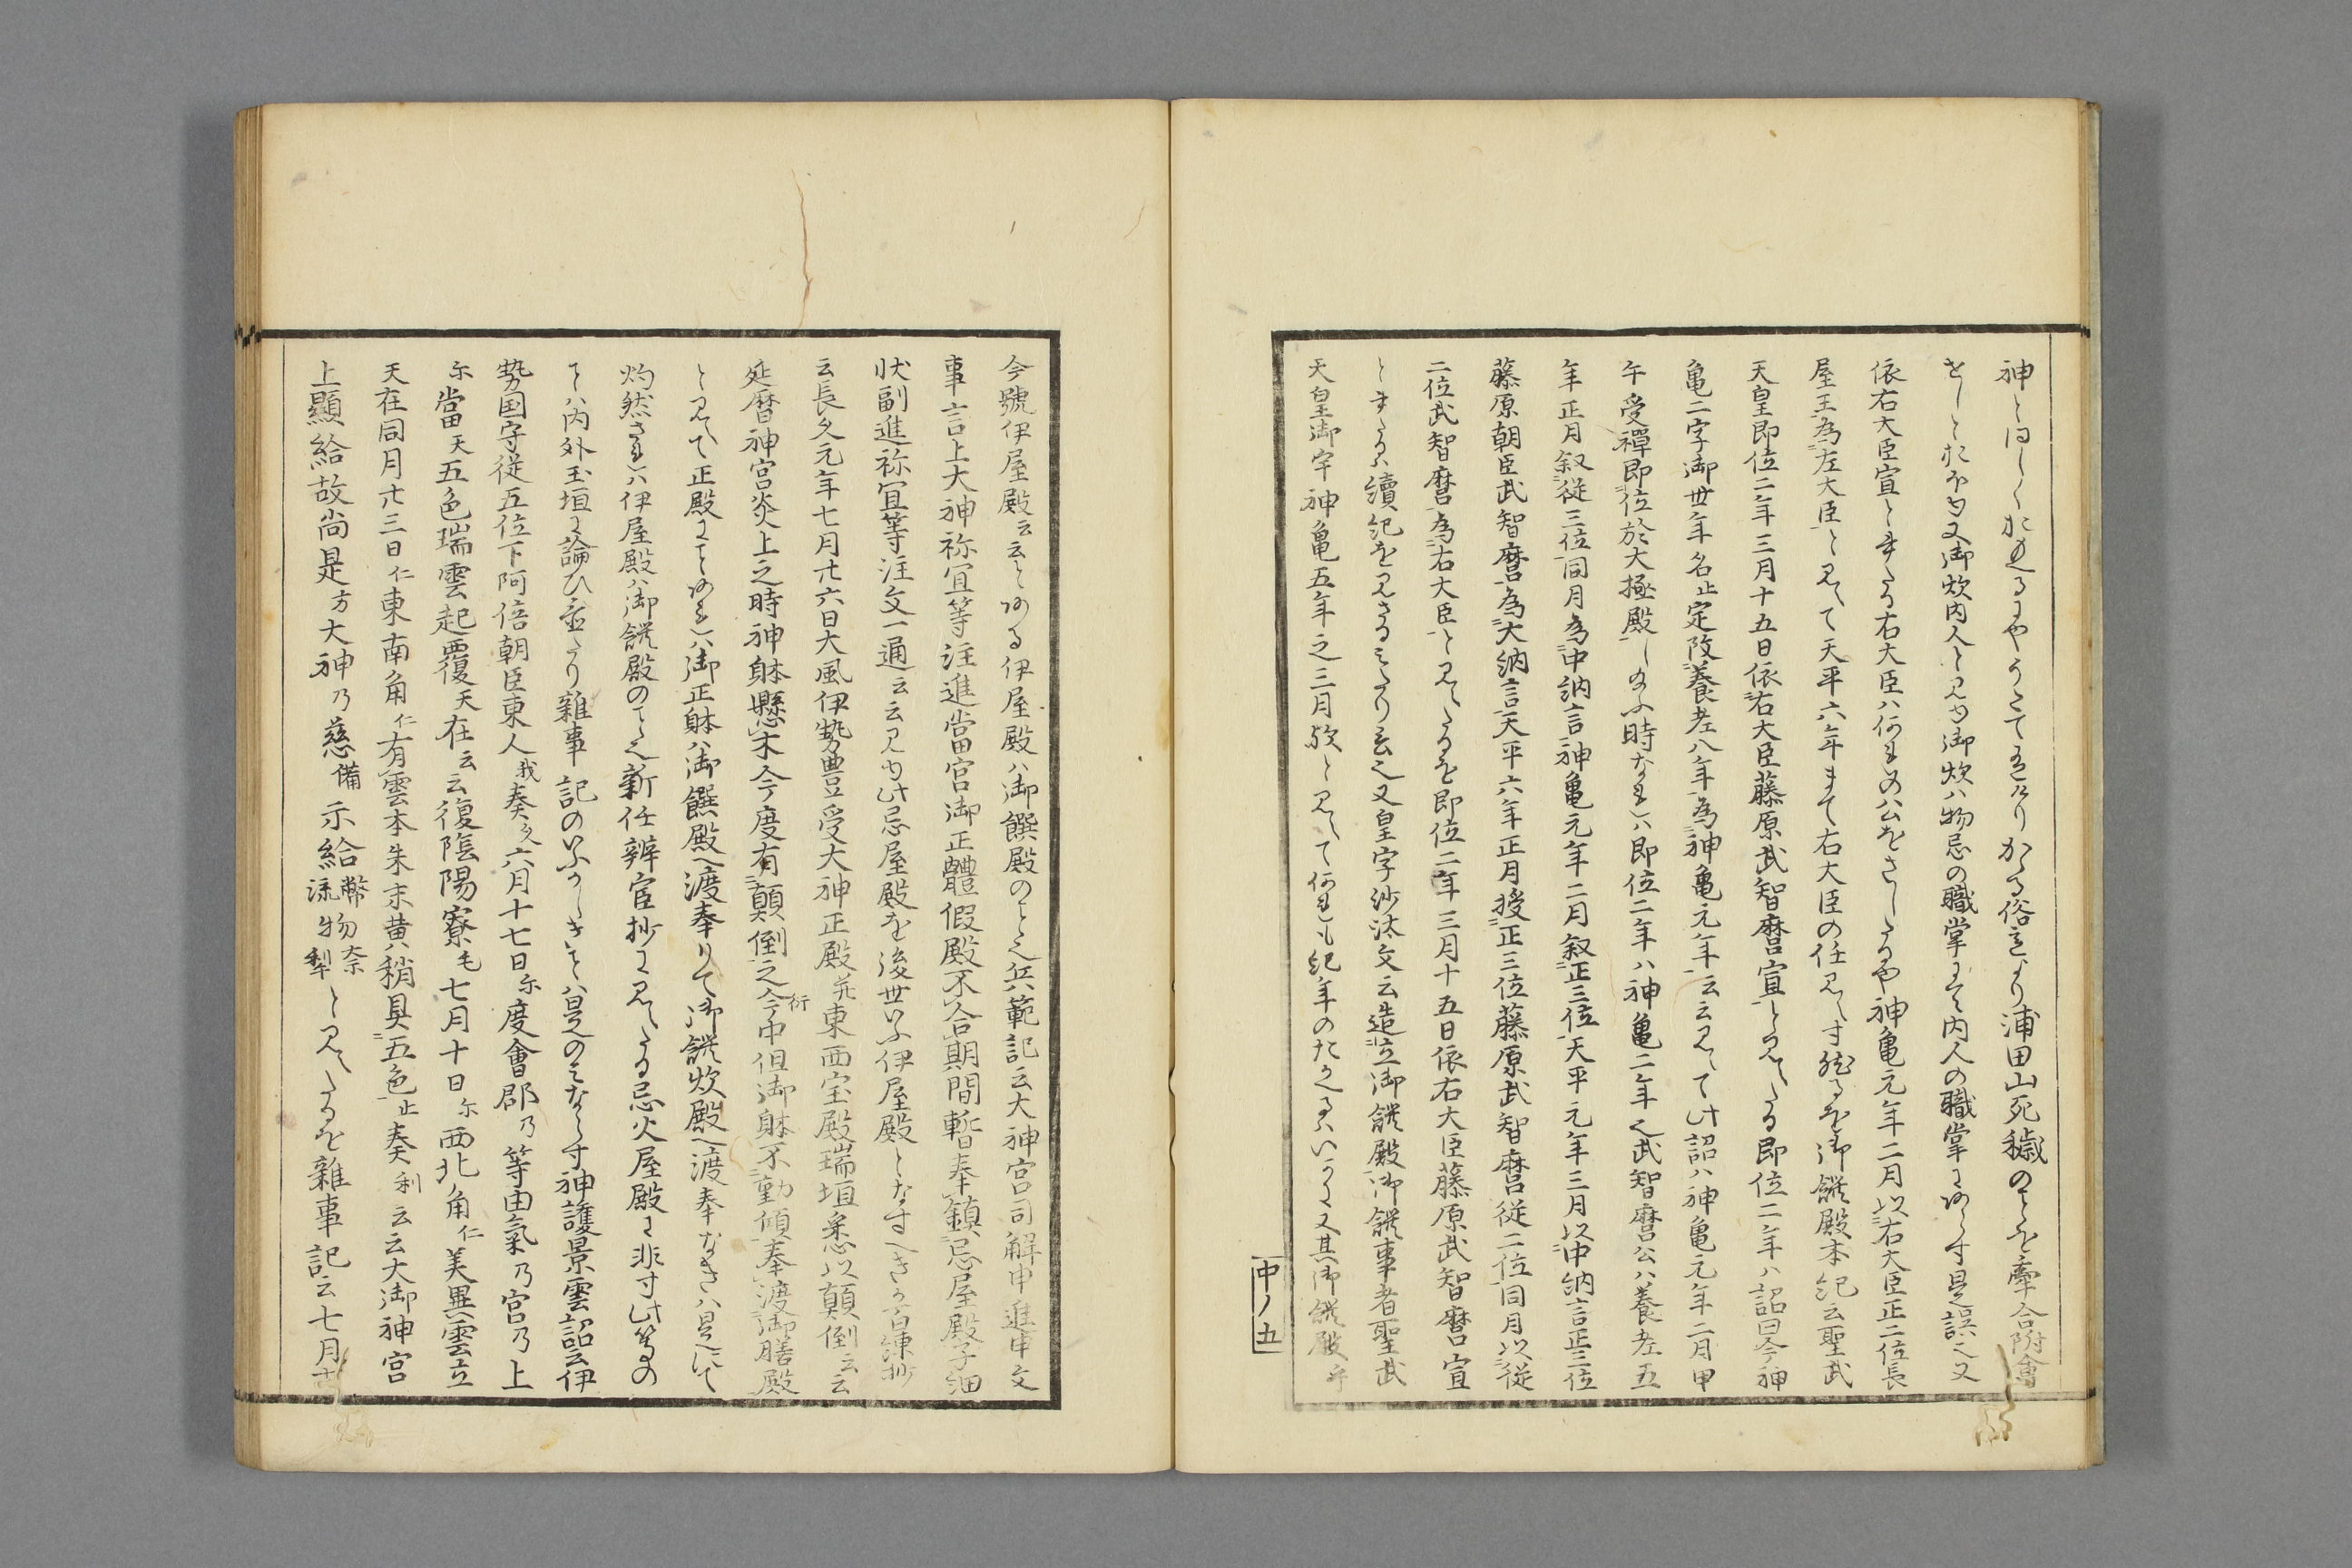 神と
かゝる俗言より浦田山死穢のことを牽合附會
又御炊内人と御炊ハ物忌の職掌にて内人の職掌にあらす是誤也又
依右大臣宣とある右大臣ハ神亀元年二月以右大臣正二位長
屋王為左大臣と見えて天平六年まて右大臣の任見えす然るを御饌殿本紀云聖武
天皇即位二年三月十五日依右大臣藤原武智麿宣と見えたる即位二年ハ詔曰今神
亀二字御世年名止定改養老八年為神亀元年云云見えて此詔ハ神亀元年二月甲
午受禪即位於大極殿し給ふ時なれハ即位二年ハ神亀二年也武智麿公ハ養老五
年正月叙従三位同月為中納言神亀元年二月叙正三位天平元年三月以中納言正三位
藤原朝臣武智麿為大納言天平六年正月授正三位藤原武智麿従二位同月以従
二位武智麿為右大臣と見えたるを即位二年三月十五日依右大臣藤原武智麿宣
とあるハ續紀を見さるあまり云也又皇字沙汰文云造立御饌殿御饌事者聖武
天皇御宇神亀五年之三月歟と見えて何れも紀年のたかへるハいかに又其御饌殿乎
中ノ五
今號伊屋殿云云とある伊屋殿ハ御饌殿のこと也兵範記云大神宮司解申進申文
事言上大神祢冝等注進當宮御正體假殿不合期間暫奉鎮忌屋殿子細
状副進祢冝等注文一通云云見ゆ此忌屋殿を後世いふ伊屋殿となすへきか百練抄
云長久元年七月廿六日大風伊勢豊受大神正殿并東西宝殿瑞垣悉以顛倒云云
延暦神宮炎上之時神躰懸木今度有顛倒之今衍中但御躰不動傾奉渡御膳殿
と見えて正殿にことあれハ御正躰ハ御饌殿へ渡奉りて御饌炊殿へ渡奉なきハ是にて
灼然されハ伊屋殿ハ御饌殿のこと也新任辨官抄に見えたる忌火屋殿に非す此等の
ことハ内外玉垣に論ひ置たり雜事記のいふかしきことハ是のみならす神護景雲詔云伊
勢国守従五位下阿倍朝臣東人我奏久六月十七日尓度會郡乃等由氣乃宮乃上
尓當天五色瑞雲起覆天在云云復陰陽寮毛七月十日尓西北ノ角仁美異雲立
天在同月廿三日仁東南角仁有雲本朱末黄ハ稍具五色止奏利云云大御神宮
上顯給故尚是方大神乃慈備示給幣流物奈利と見えたるを雜事記云七月